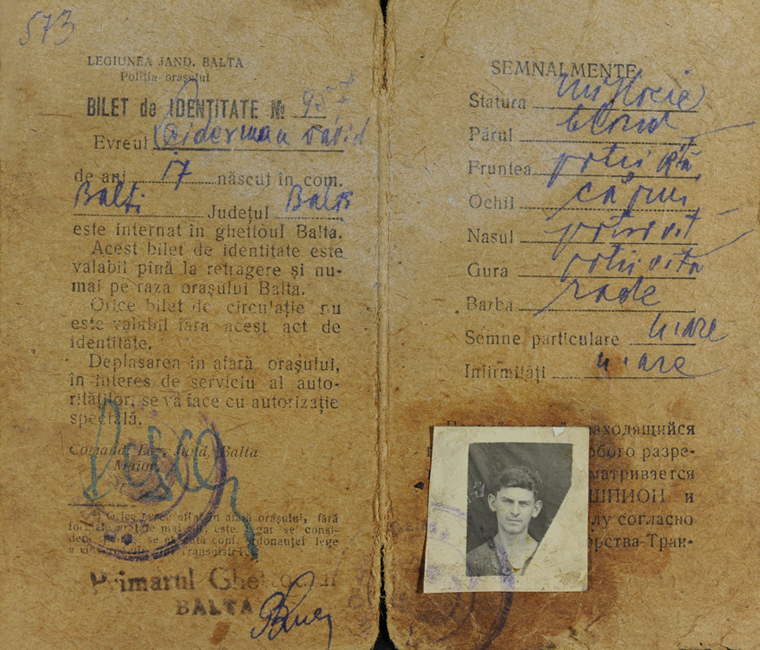 573
LEGIUNEA JAND. BALTA
Poliția orașului
BILET de IDENTITATE № 957
Evreul David
de ani 17 născut în com.
Balți Județul Balți
este internat în ghettoul Balta.
Acest bilet de identitate este
valabil pînă la retragere și nu-
mai pe raza orașului Balta.
Orice bilet de circulație nu
este valabil fără acest act de
identitate.
Deplasarea în afară orașului,
în interes de serviciu al auto-
rităților, se va face cu autorizație
specială.
Comand. Leg. Jand. Balta
Maior
Primarul Ghettoului
BALTA
SEMNALMENTE
Statura mijlocie
Părul blond
Fruntea potrivită
Ochii căprui
Nasul potrivit
Gura potrivita
Barba rade
Semne particulare n'are
Infirmități n'are
находящийся
ого разре-
матривается
ШПИОН и
лу согласно
рства-Тран-